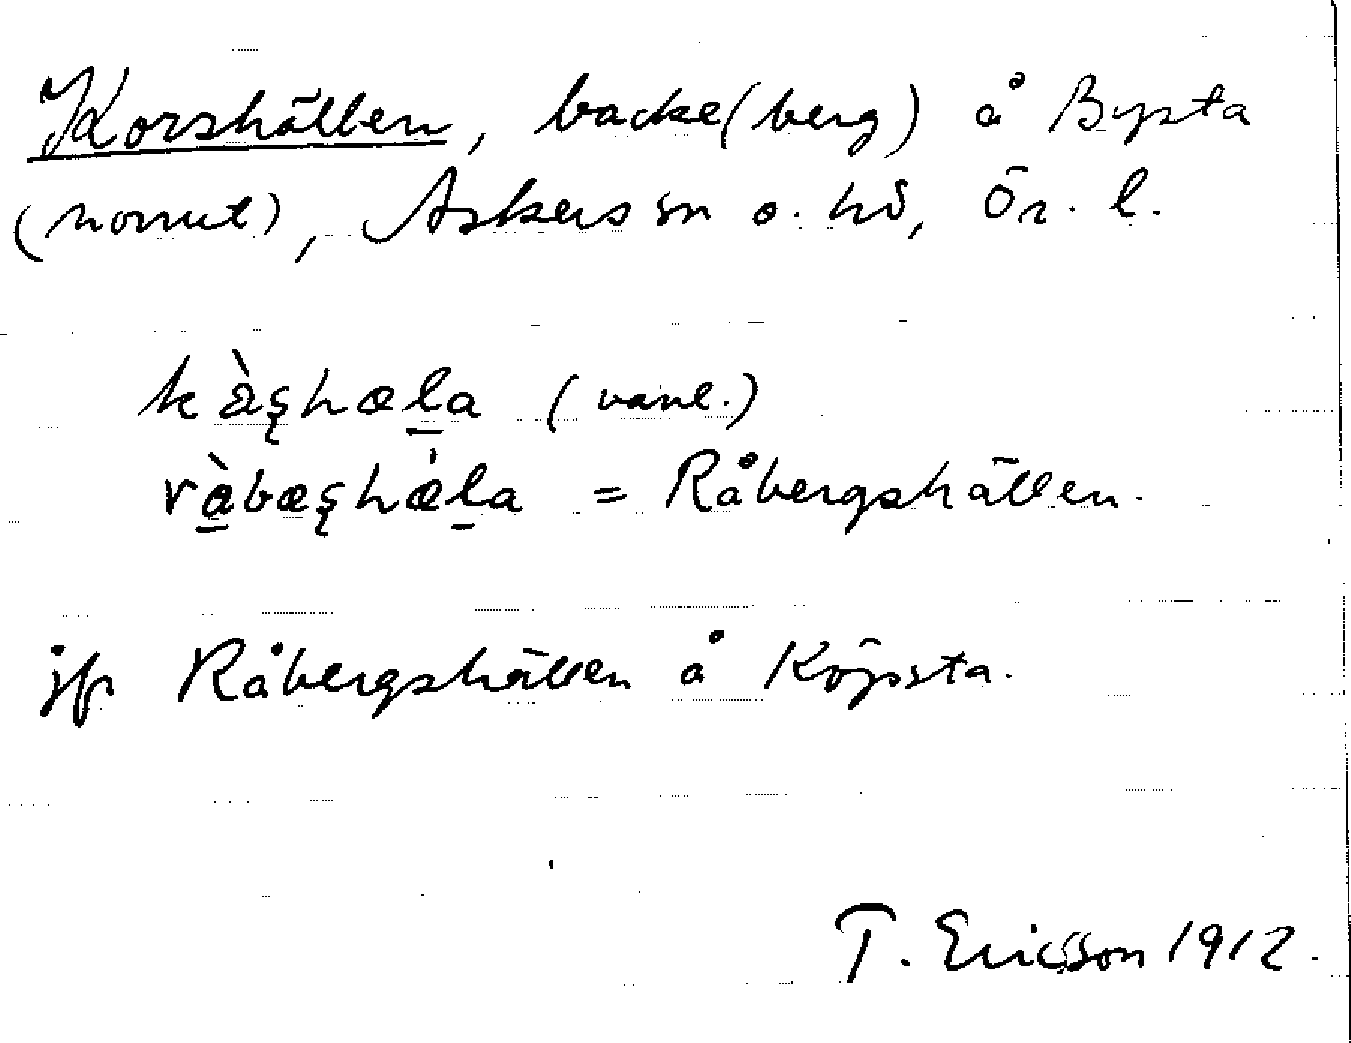 Korshällen, backe (berg) å Bysta
(norrut), Askers sn o. hd, Ör. l.
kàʂhæla (vanl.)
ràbæʂhæ̀la = Råbergshällen.
jfr Råbergshällen å Köpsta.
T. Ericsson 1912.